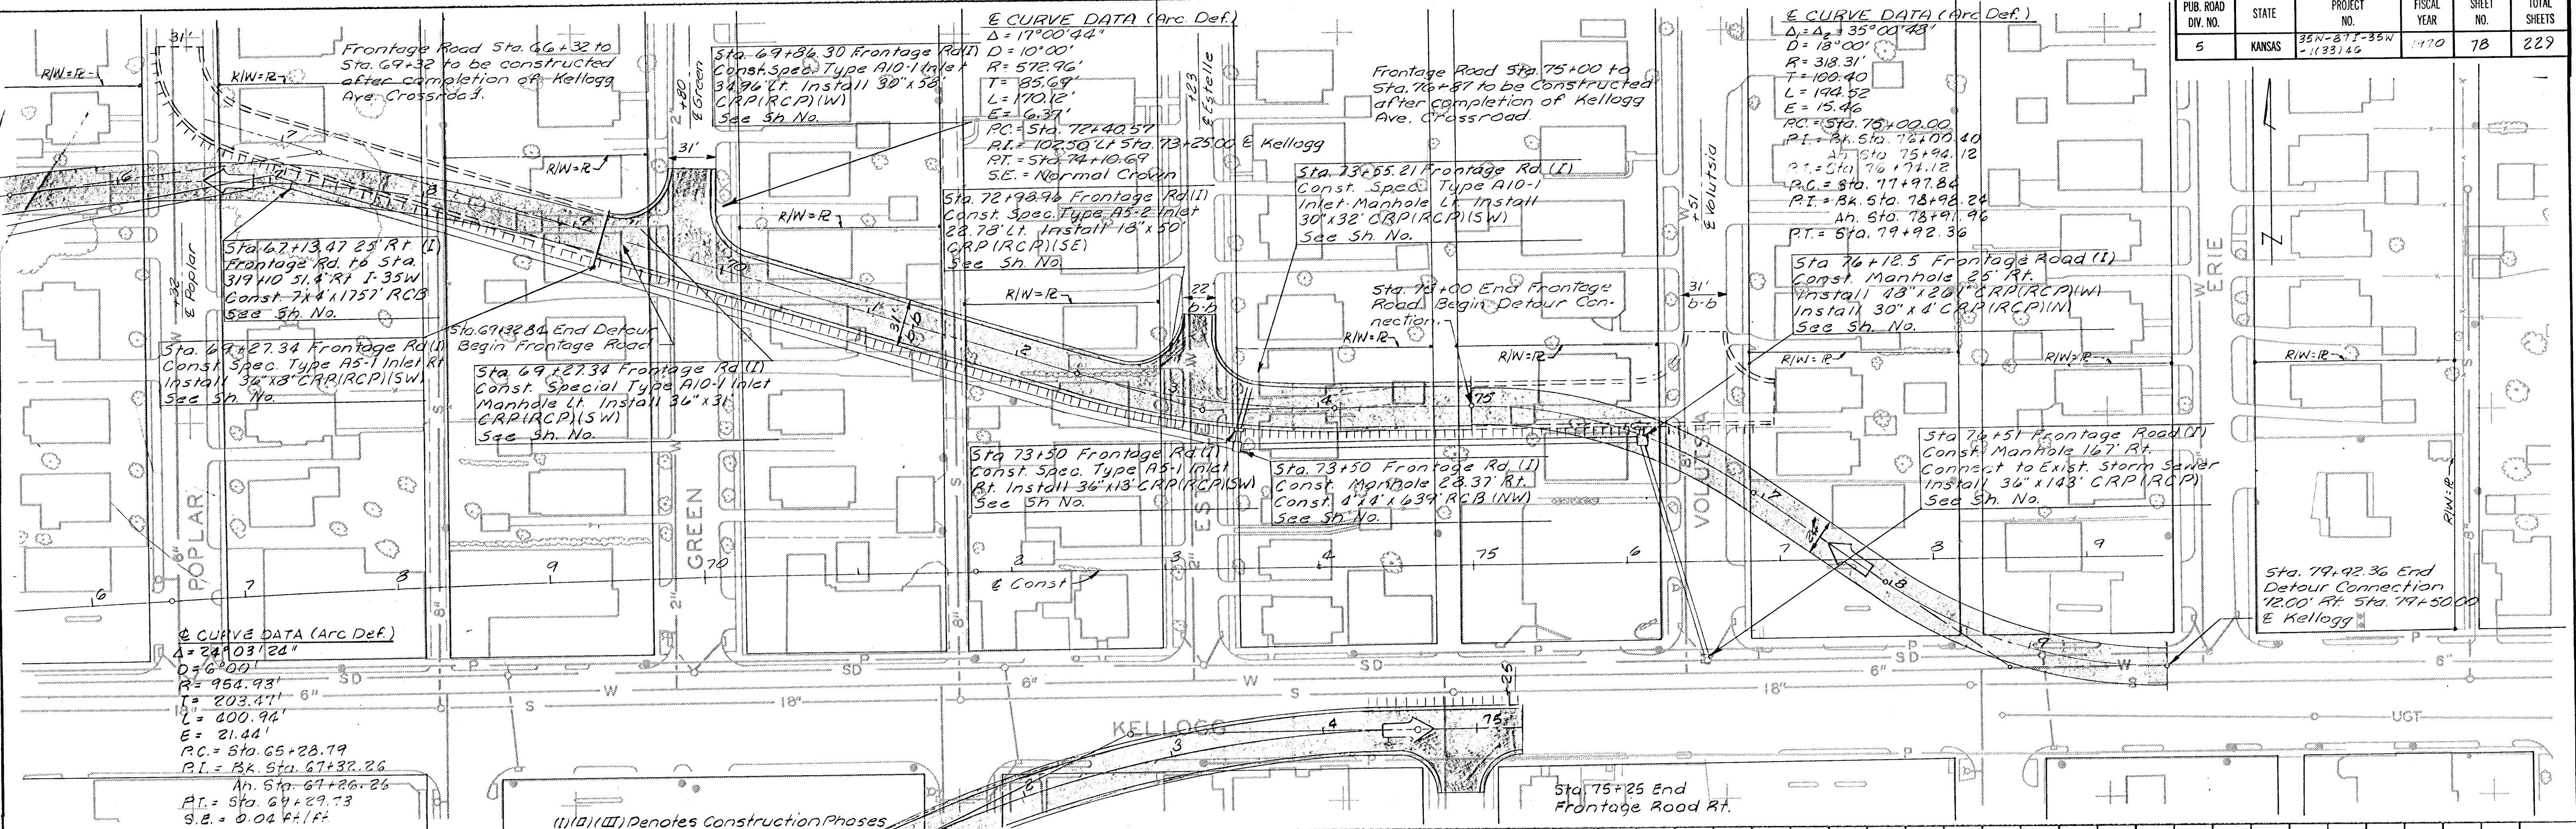 PUB. ROAD DIV. NO.
STATE
PROJECT NO.
FISCAL YEAR
SHEET NO.
TOTAL SHEETS
5
KANSAS
35W-87I-35W
-1(33)46
1970
78
229
31'
R/W=℞
R/W=℞
Frontage Road Sta. 66+32 to
Sta. 69+32 to be constructed
after completion of Kellogg
Ave. Crossroad.
2+80
℄ Green
31'
R/W=℞
Sta. 69+86.30 Frontage Rd(I)
Const. Spec. Type A10-1 Inlet
34.96' Lt. Install 30"x58'
CRP(RCP)(W)
See Sh No.
℄ CURVE DATA (Arc Def.)
Δ = 17°00'44"
D = 10°00'
R = 572.96'
T = 85.69'
L = 170.12'
E = 6.37'
P.C. = Sta. 72+40.57
P.I. = 102.50' Lt Sta. 73+25.00 ℄ Kellogg
P.T. = Sta. 74+10.69
S.E. = Normal Crown
+23
℄ Estelle
Frontage Road Sta. 75+00 to
Sta. 76+87 to be Constructed
after completion of Kellogg
Ave. Crossroad.
℄ CURVE DATA (Arc Def.)
Δ₁ = Δ₂ = 35°00'48"
D = 18°00'
R = 318.31'
T = 100.40
L = 194.52
E = 15.46
P.C. = Sta. 75+00.00
P.I. = Bk. Sta. 76+00.40
Ah. Sta 75+94.12
P.T. = Sta 76+94.12
P.C. = Sta. 77+97.84
P.I. = Bk. Sta. 78+98.24
Ah. Sta. 78+91.96
P.T. = Sta. 79+92.36
+51
℄ Volutsia
31'
b-b
ERIE
N
R/W=℞
Sta. 72+98.96 Frontage Rd(I)
Const. Spec. Type A5-2 Inlet
22.78' Lt. Install 18"x50'
CRP(RCP)(SE)
See Sh. No.
Sta. 73+55.21 Frontage Rd. (I)
Const. Spec. Type A10-1
Inlet Manhole Lt. Install
30"x32' CRP(RCP)(SW)
See Sh. No.
Sta. 67+13.47 25' Rt. (I)
Frontage Rd. to Sta.
319+10 51.4' Rt I-35W
Const. 7'x4'x1757' RCB
See Sh. No.
+32
℄ Poplar
Sta. 69+27.34 Frontage Rd(I)
Const. Spec. Type A5-1 Inlet Rt
Install 36"x8' CRP(RCP)(SW)
See Sh No.
Sta. 69+32.84 End Detour
Begin Frontage Road
Sta. 69+27.34 Frontage Rd(I)
Const. Special Type A10-1 Inlet
Manhole Lt. Install 36"x31'
CRP(RCP)(SW)
See Sh. No.
31' b-b
R/W=℞
22'
b-b
Sta. 75+00 End Frontage
Road. Begin Detour Con-
nection.
R/W=℞
R/W=℞
Sta 76+12.5 Frontage Road (I)
Const. Manhole 25' Rt.
Install 48"x261' CRP(RCP)(W)
Install 30"x4' CRP(RCP)(N)
See Sh. No.
R/W=℞
R/W=℞
R/W=℞
R/W=℞
6
7
8
9
70
1
2
3
4
75
Sta 73+50 Frontage Rd.(I)
Const. Spec. Type A5-1 Inlet
Rt. Install 36"x13' CRP(RCP)(SW)
See Sh No.
Sta. 73+50 Frontage Rd. (I)
Const. Manhole 28.37' Rt.
Const. 4'x4'x639' RCB (NW)
See Sh No.
Sta 76+51 Frontage Road (I)
Const. Manhole 167' Rt.
Connect to Exist. Storm Sewer
Install 36"x143' CRP(RCP)
See Sh. No.
POPLAR
GREEN
VOLUTSIA
6
7
8
9
70
2
3
4
75
6
7
8
9
℄ Const
Sta. 79+92.36 End
Detour Connection
12.00' Rt. Sta. 79+50.00
℄ Kellogg
℄ CURVE DATA (Arc Def.)
Δ = 24°03'24"
D = 6°00'
R = 954.93'
T = 203.47'
L = 400.94'
E = 21.44'
P.C. = Sta. 65+28.79
P.I. = Bk. Sta. 67+32.26
Ah. Sta. 67+26.26
P.T. = Sta. 69+29.73
S.E. = 0.04 ft./ft.
SD
P
P
SD
P
SD
P
18"
6"
W
S
18"
6"
W
S
18"
6"
W
S
6"
KELLOGG
UGT
2
3
4
75
25
P
P
Sta. 75+25 End
Frontage Road Rt.
(I)(II)(III) Denotes Construction Phases